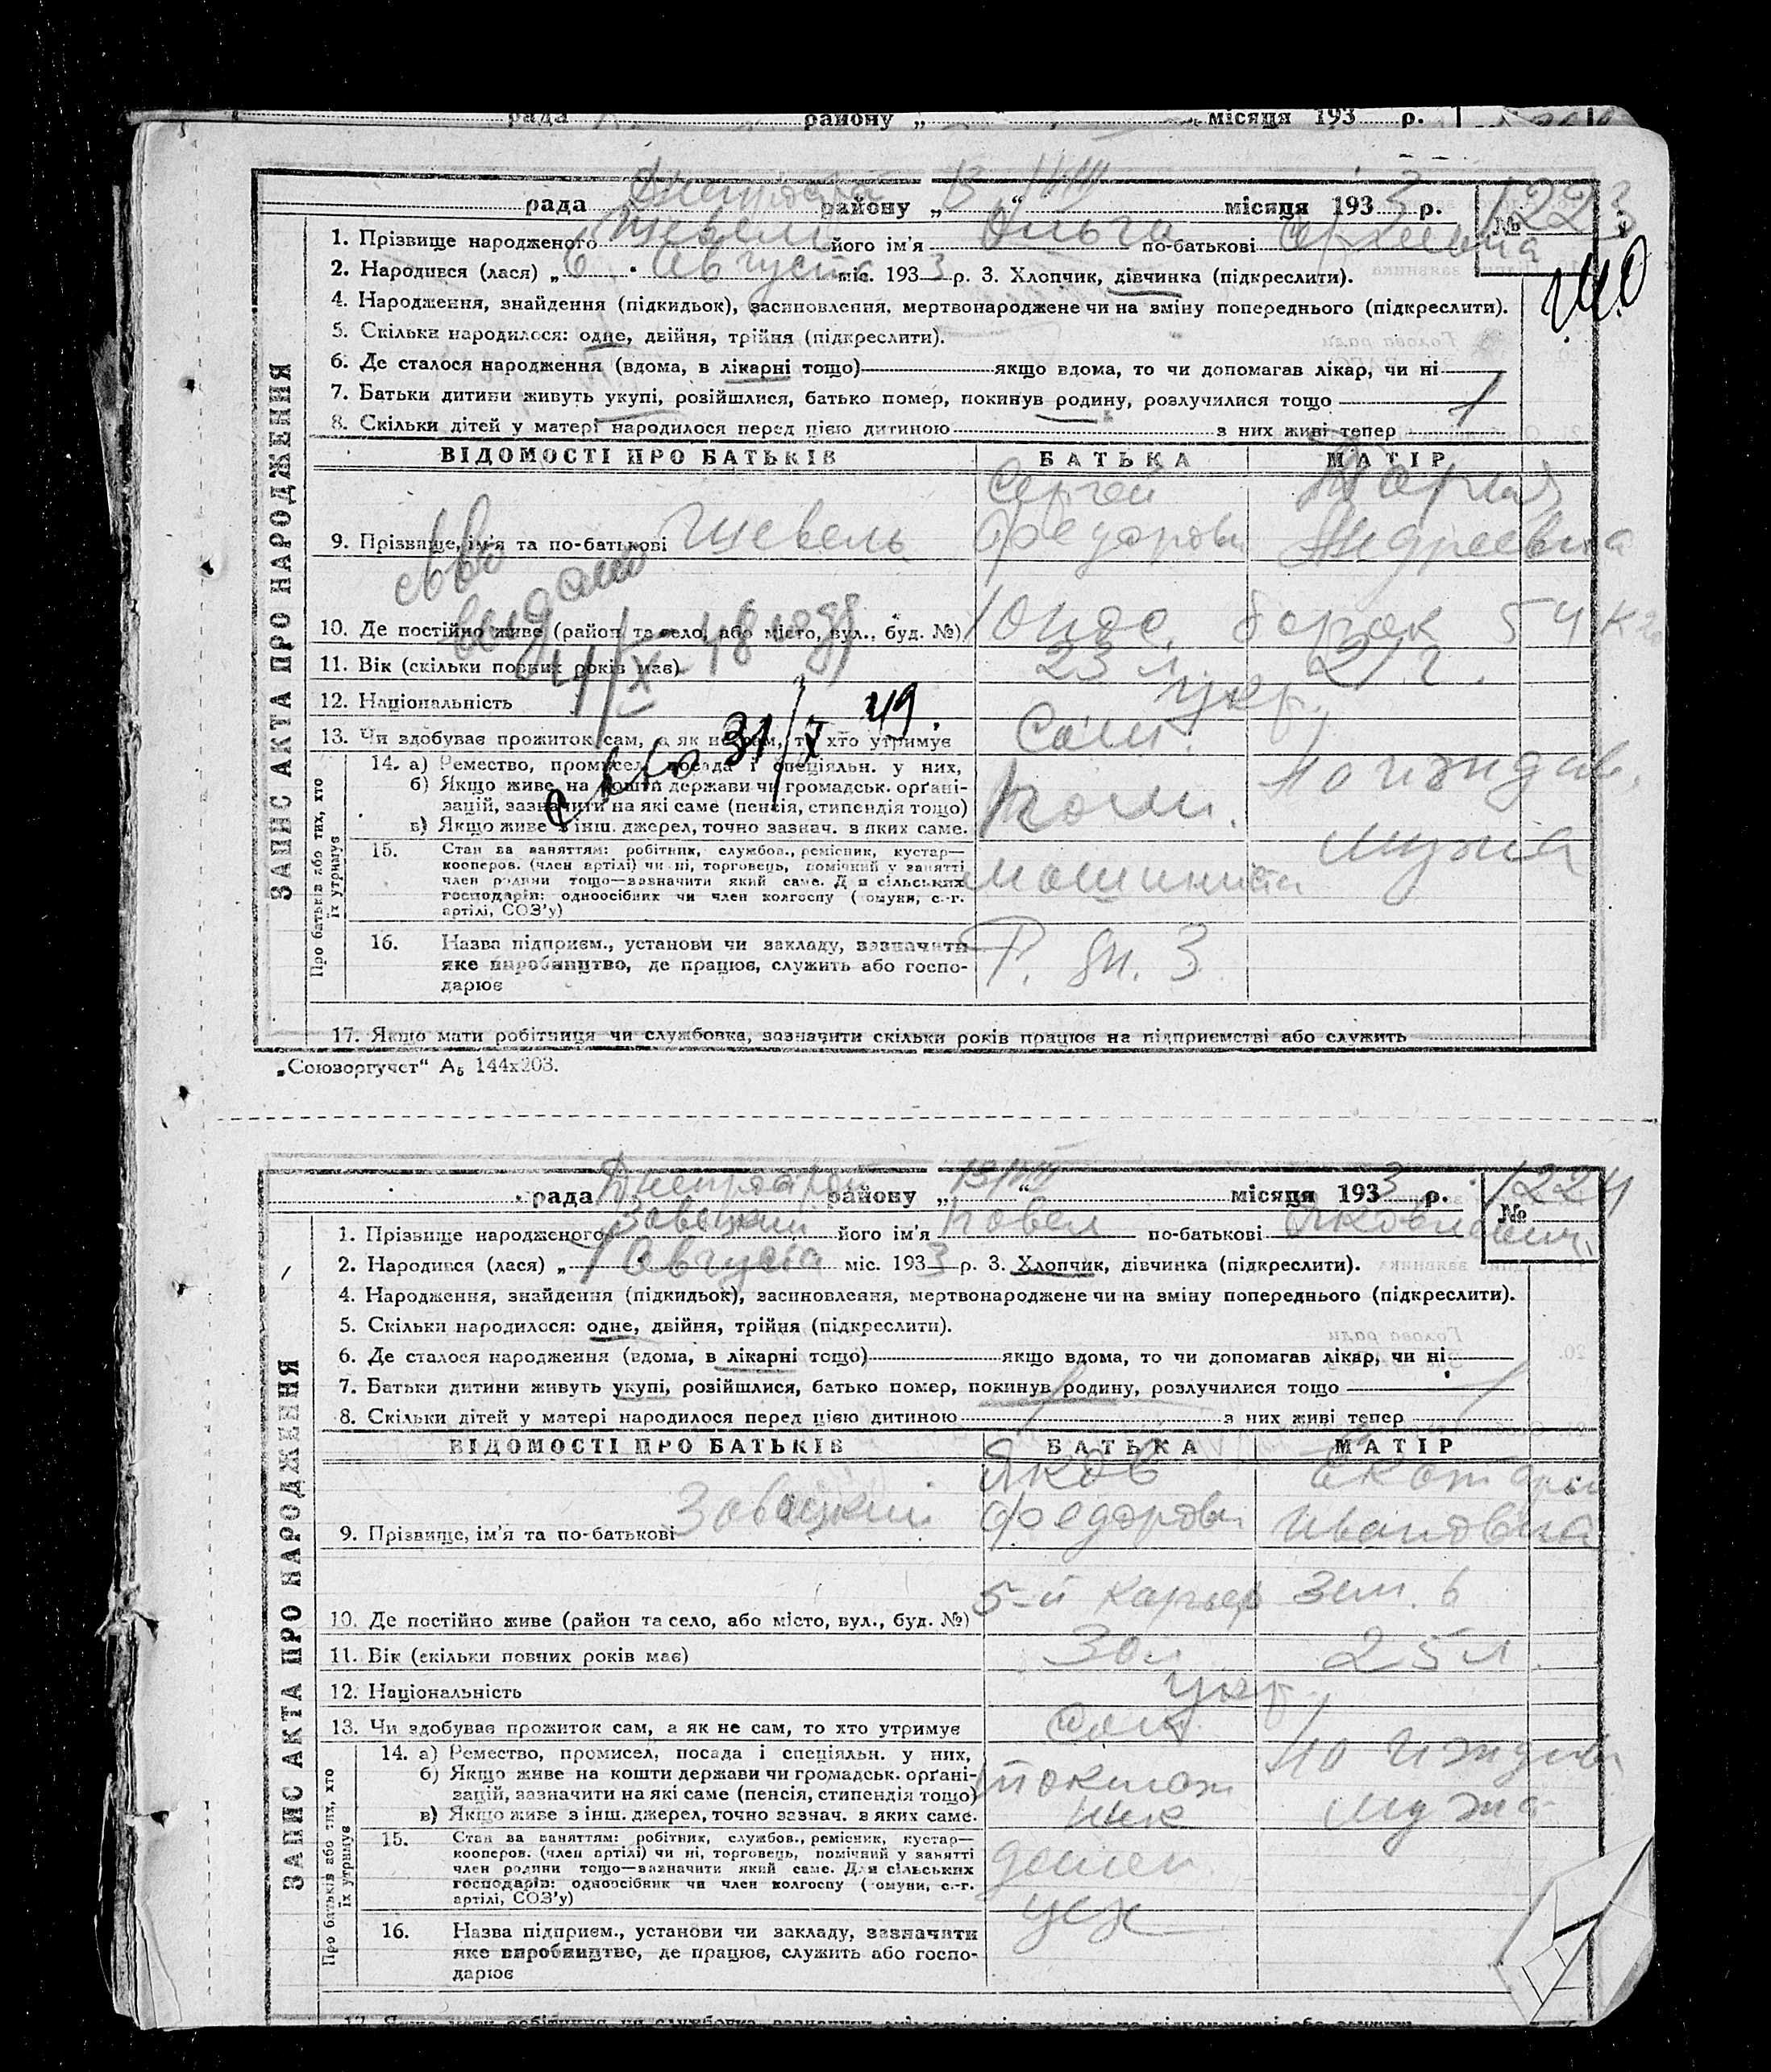 рада району „ місяця 193 р.
рада району „13“ VIII місяця 1933 р. № 1223
1. Прізвище народженого Шевель його ім'я Ольга по-батькові Сергеевна
2. Народився (лася) „6 Августа міс. 1933 р. 3. Хлопчик, дівчинка (підкреслити).
4. Народження, знайдення (підкидьок), засиновлення, мертвонароджене чи на зміну попереднього (підкреслити).
5. Скільки народилося: одне, двійня, трійня (підкреслити).
6. Де сталося народження (вдома, в лікарні тощо) якщо вдома, то чи допомагав лікар, чи ні
7. Батьки дитини живуть укупі, розійшлися, батько помер, покинув родину, розлучилися тощо
8. Скільки дітей у матері народилося перед цією дитиною з них живі тепер
ЗАПИС АКТА ПРО НАРОДЖЕННЯ
ВІДОМОСТІ ПРО БАТЬКІВ БАТЬКА МАТІР
Сергей Мария
9. Прізвище, ім'я та по-батькові Шевель Федорови Андреевна
св-во
выдано
4/X-48 года
10. Де постійно живе (район та село, або місто, вул., буд. №) барак 54 к
11. Вік (скільки повних років має) 23 л. 21 г.
12. Національність укр.
13. Чи здобуває прожиток сам, а як не сам, то хто утримує Сам.
31/X 49.
Про батьків або тих, хто їх утримує
14. а) Ремество, промисел, посада і спеціяльн. у них, на иждив.
б) Якщо живе на кошти держави чи громадськ. органі-
зацій, зазначити на які саме (пенсія, стипендія тощо) пом.
в) Якщо живе з інш. джерел, точно зазнач. з яких саме. мужа
15. Стан за заняттям: робітник, службов., ремісник, кустар—
кооперов. (член артілі) чи ні, торговець, помічний у занятті
член родини тощо—зазначити який саме. Для сільських машиниста
господарів: одноосібник чи член колгоспу (комуни, с.-г.
артілі, СОЗ'у)
16. Назва підприєм., установи чи закладу, зазначити
яке виробництво, де працює, служить або госпо-
дарює
17. Якщо мати робітниця чи службовка, зазначити скільки років працює на підприємстві або служить
„Союзоргучет“ А₅ 144х203.
рада Днепрострой району „13“ VIII місяця 1933 р. № 1224
1. Прізвище народженого Завецкий його ім'я Павел по-батькові Яковлевич
2. Народився (лася) „1 Августа міс. 1933 р. 3. Хлопчик, дівчинка (підкреслити).
4. Народження, знайдення (підкидьок), засиновлення, мертвонароджене чи на зміну попереднього (підкреслити).
5. Скільки народилося: одне, двійня, трійня (підкреслити).
6. Де сталося народження (вдома, в лікарні тощо) якщо вдома, то чи допомагав лікар, чи ні
7. Батьки дитини живуть укупі, розійшлися, батько помер, покинув родину, розлучилися тощо
8. Скільки дітей у матері народилося перед цією дитиною 1 з них живі тепер 1
ЗАПИС АКТА ПРО НАРОДЖЕННЯ
ВІДОМОСТІ ПРО БАТЬКІВ БАТЬКА МАТІР
Яков Екатери
9. Прізвище, ім'я та по-батькові Завецкий Федорови Ивановна
10. Де постійно живе (район та село, або місто, вул., буд. №) 5-й карьер зем. 6
11. Вік (скільки повних років має) 30 л 25 л.
12. Національність укр.
13. Чи здобуває прожиток сам, а як не сам, то хто утримує сам.
Про батьків або тих, хто їх утримує
14. а) Ремество, промисел, посада і спеціяльн. у них, на иждив
б) Якщо живе на кошти держави чи громадськ. органі-
зацій, зазначити на які саме (пенсія, стипендія тощо) мужа
в) Якщо живе з інш. джерел, точно зазнач. в яких саме.
15. Стан за заняттям: робітник, службов., ремісник, кустар—
кооперов. (член артілі) чи ні, торговець, помічний у занятті
член родини тощо—зазначити який саме. Для сільських
господарів: одноосібник чи член колгоспу (комуни, с.-г.
артілі, СОЗ'у)
16. Назва підприєм., установи чи закладу, зазначити
яке виробництво, де працює, служить або госпо-
дарює